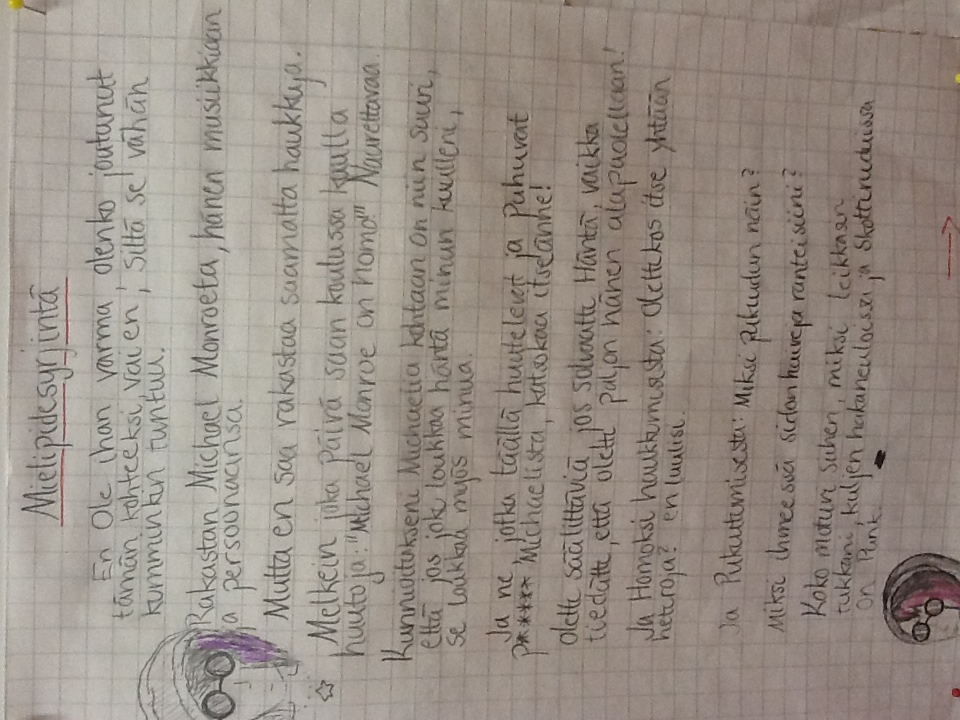 Mielipidesyrjintä
En Ole ihan varma, olenko joutunut
tämän kohteeksi, vai en, siltä se vähän
kumminkin tuntuu.
Rakastan Michael Monroeta, hänen musiikkiaan
ja persoonaansa.
Mutta en saa rakastaa saamatta haukkuja.
Melkein joka päivä saan koulussa kuulla
huutoja: "Michael Monroe on Homo!" Naurettavaa.
Kunnioitukseni Michaelia kohtaan on niin suuri,
että jos joku loukkaa häntä minun kuulleni,
se loukkaa myös minua.
Ja ne, jotka täällä huutelevat ja Puhuvat
p***** Michaelista, katsokaa itseänne!
Olette säälittäviä jos solvaatte Häntä, vaikka
tiedätte, että olette paljon hänen alapuolellaan!
Ja Homoksi haukkumisesta: Olettekos itse yhtään
heteroja? en luulisi.
Ja Pukeutumisesta: Miksi pukeudun näin?
Miksi ihmeessä sidon huiveja ranteisiini?
Koko motun suhen, miksi leikkaan
tukkani, kuljen hakaneuloissa ja skottiruuduissa
On Punk.